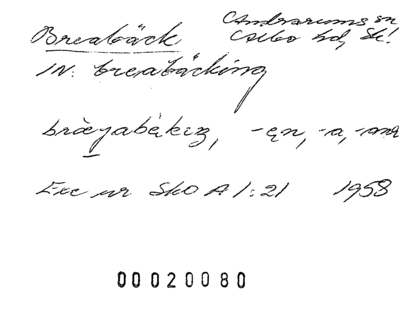 Breabäck Andrarums sn
Albo hd, Sk!
IN: breabäcking
bræyabækiŋ, -en, -a, -ana
Exc ur Sko A 1:21 1958
00020080